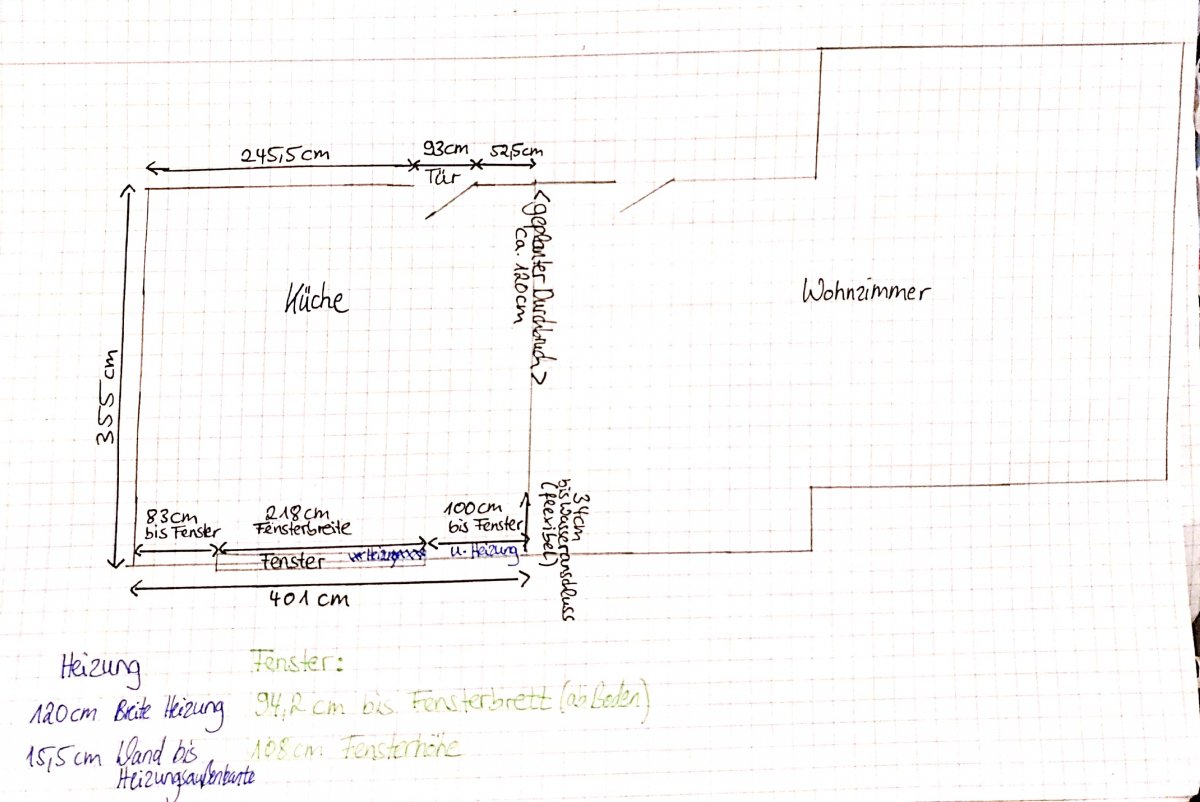 245,5cm
93cm
52,5cm
Tür
<geplanter Durchbruch>
ca. 120cm
Küche
Wohnzimmer
355 cm
83cm
bis Fenster
218cm
Fensterbreite
100cm
bis Fenster
u. Heizung
34cm
bis Wasseranschluss
(flexibel)
Fenster
Heizung
401 cm
Heizung
120cm Breite Heizung
15,5cm Wand bis
Heizungsaußenkante
Fenster:
94,2 cm bis Fensterbrett (ab Boden)
108 cm Fensterhöhe